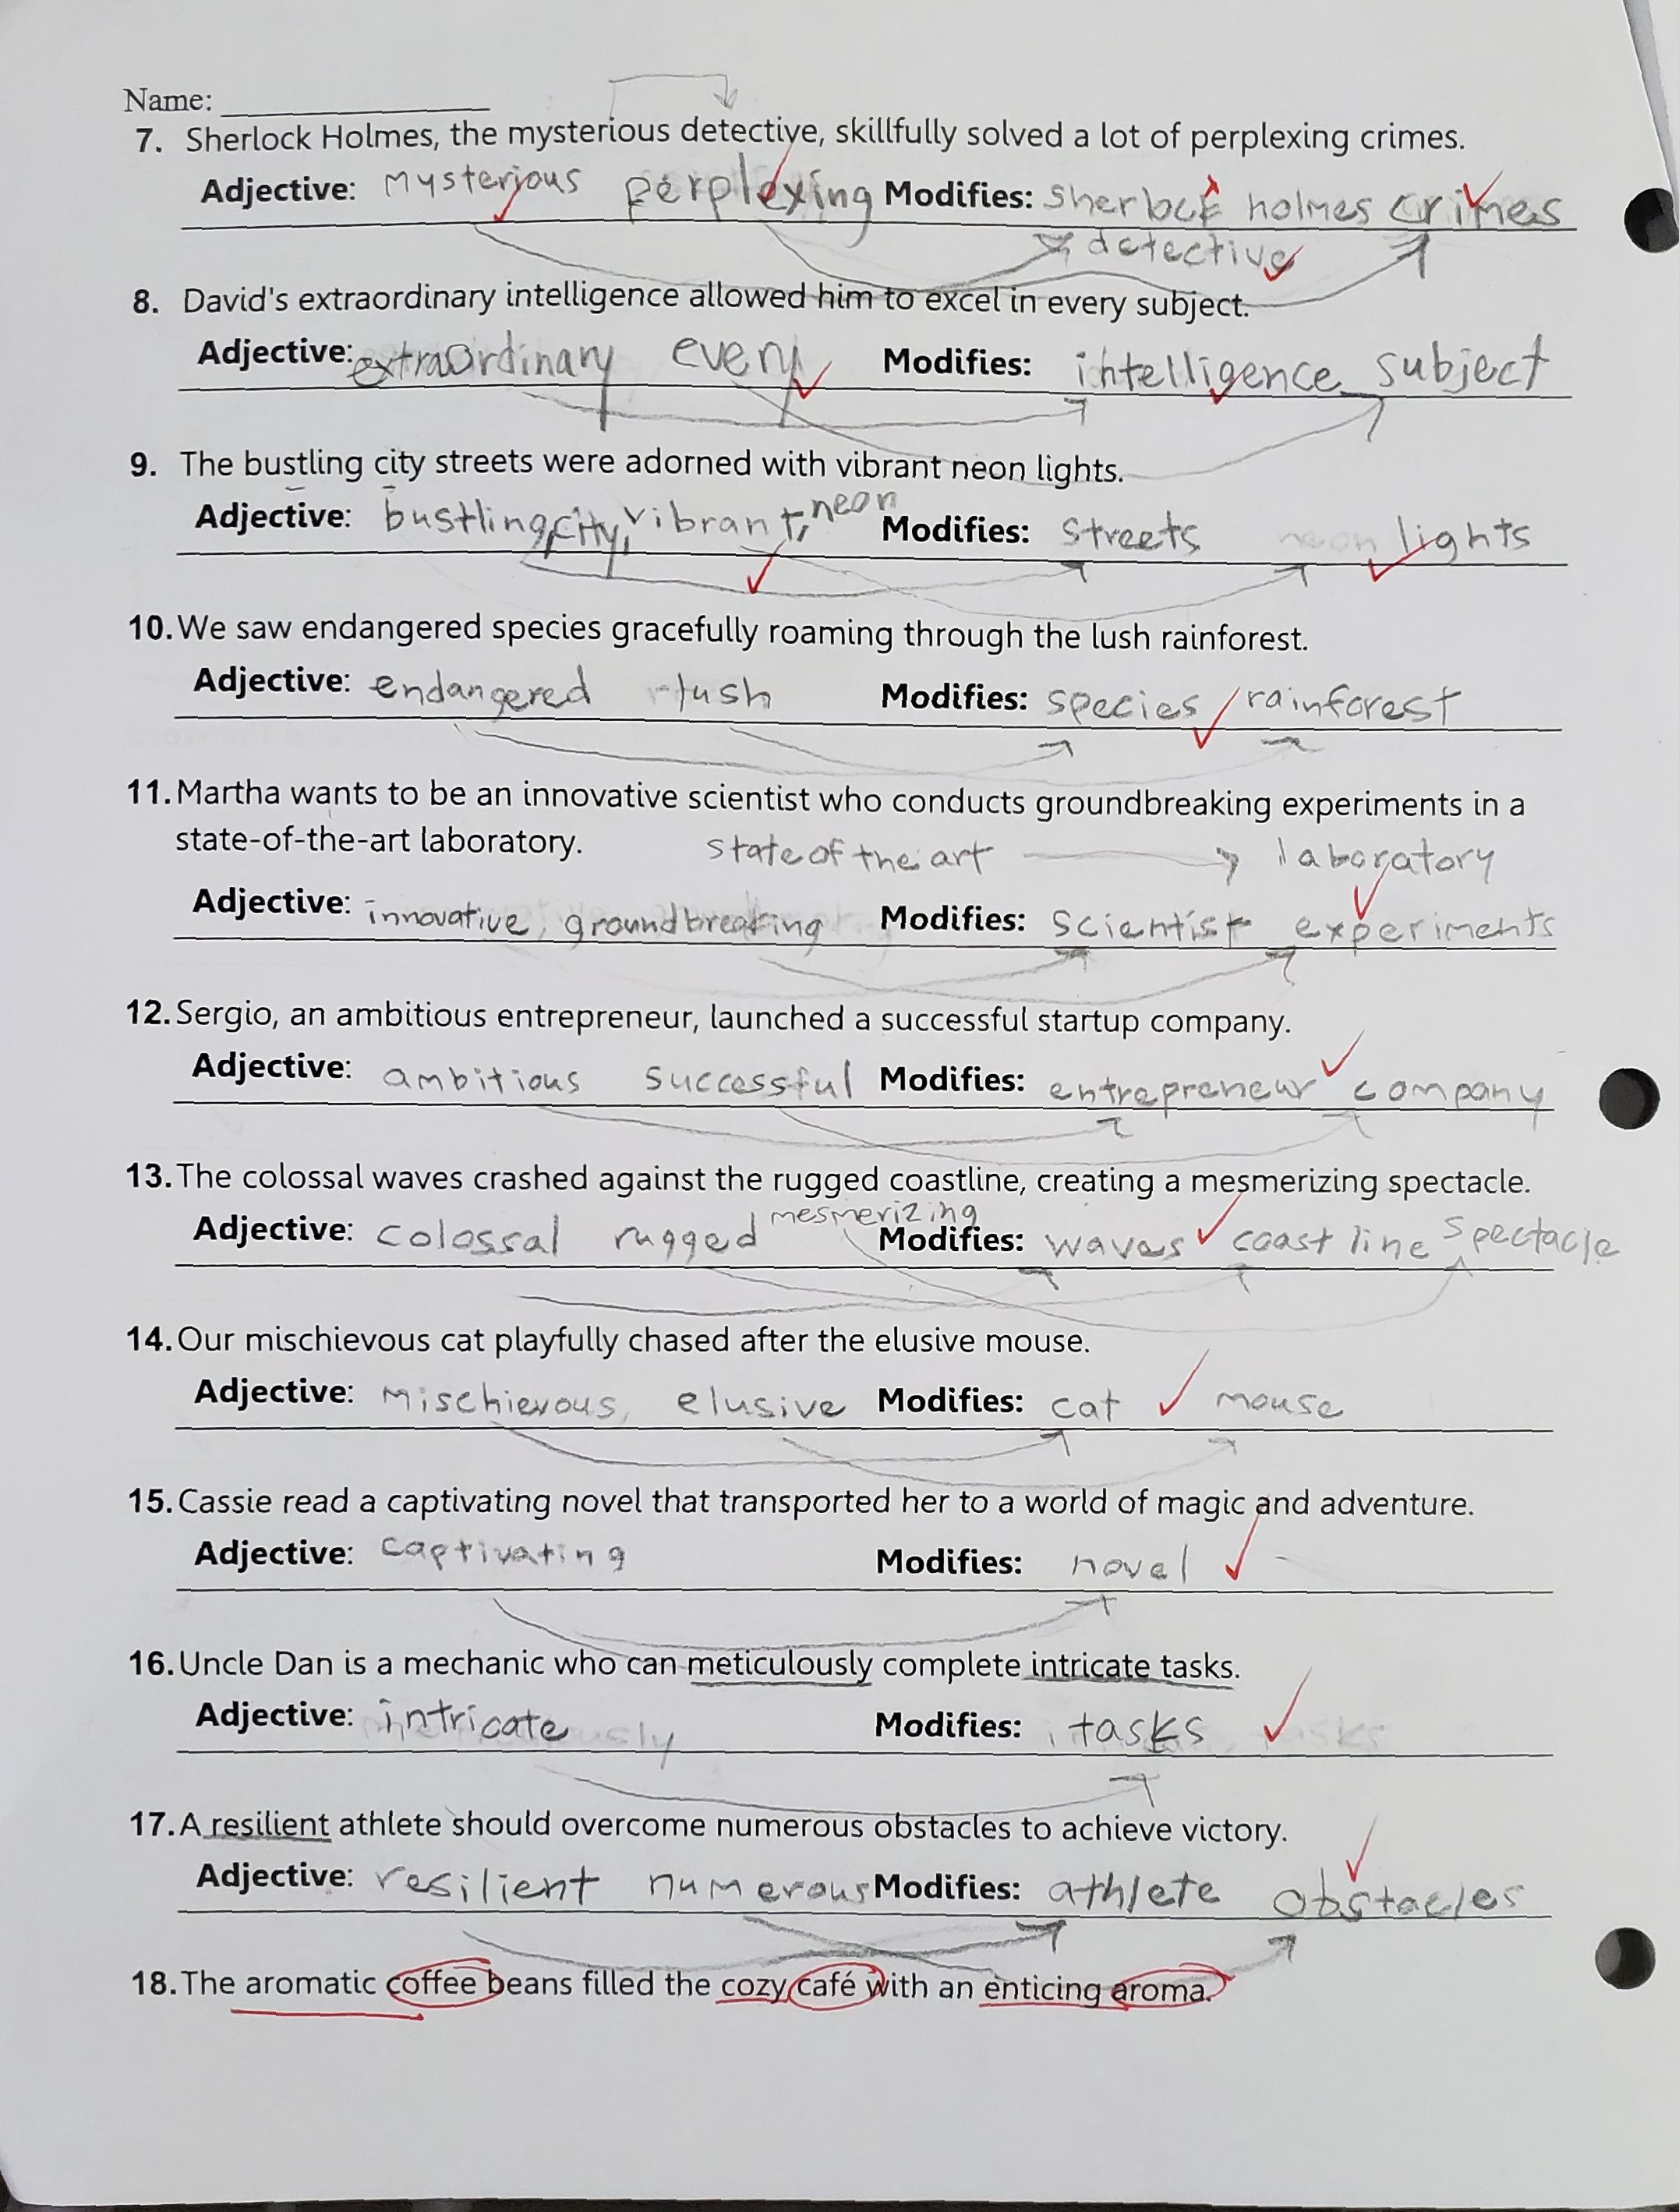 Name:
7. Sherlock Holmes, the mysterious detective, skillfully solved a lot of perplexing crimes.
Adjective: mysterious perplexing Modifies: sherlock holmes crimes
detective
8. David's extraordinary intelligence allowed him to excel in every subject.
Adjective: extraordinary every Modifies: intelligence subject
9. The bustling city streets were adorned with vibrant neon lights.
Adjective: bustling, city, vibrant, neon Modifies: streets lights
10. We saw endangered species gracefully roaming through the lush rainforest.
Adjective: endangered lush Modifies: species rainforest
11. Martha wants to be an innovative scientist who conducts groundbreaking experiments in a
state-of-the-art laboratory. state of the art laboratory
Adjective: innovative, groundbreaking Modifies: scientist experiments
12. Sergio, an ambitious entrepreneur, launched a successful startup company.
Adjective: ambitious successful Modifies: entrepreneur company
13. The colossal waves crashed against the rugged coastline, creating a mesmerizing spectacle.
Adjective: colossal rugged mesmerizing Modifies: waves coast line spectacle
14. Our mischievous cat playfully chased after the elusive mouse.
Adjective: mischievous, elusive Modifies: cat mouse
15. Cassie read a captivating novel that transported her to a world of magic and adventure.
Adjective: captivating Modifies: novel
16. Uncle Dan is a mechanic who can meticulously complete intricate tasks.
Adjective: intricate Modifies: tasks
17. A resilient athlete should overcome numerous obstacles to achieve victory.
Adjective: resilient numerous Modifies: athlete obstacles
18. The aromatic coffee beans filled the cozy café with an enticing aroma.